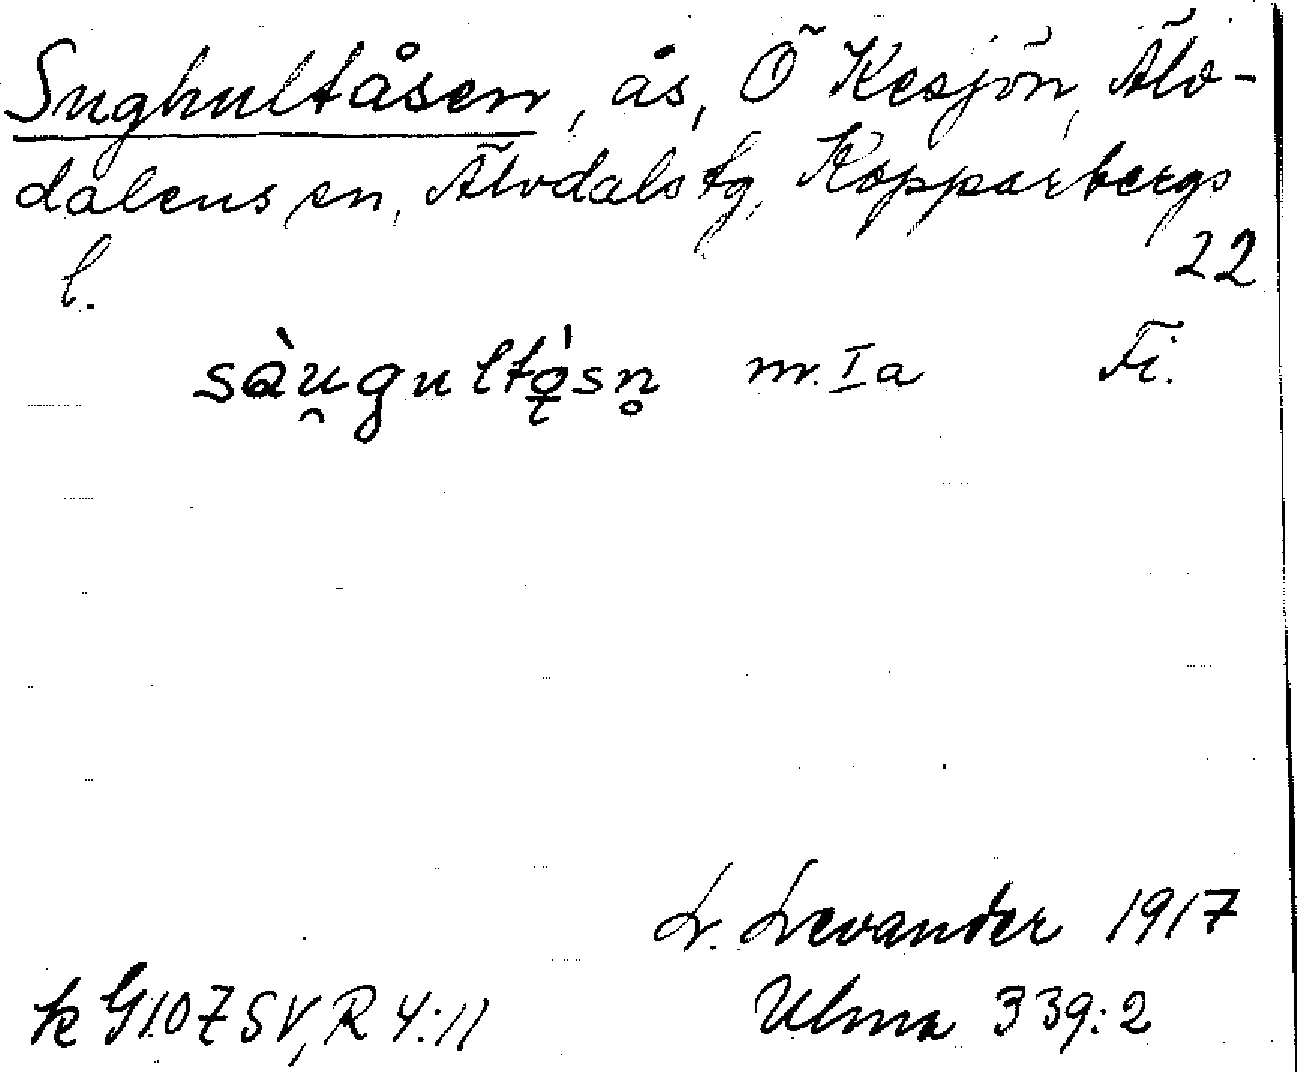 Sughultåsen, ås, Ö Kesjön, Älv-
dalens sn, Älvdals tg, Kopparbergs
l. 22
sàu̯gultą̊̀sn̥ m. Ia Fi.
L. Levander 1917
k G107SV, R 4:11 Ulma 339:2